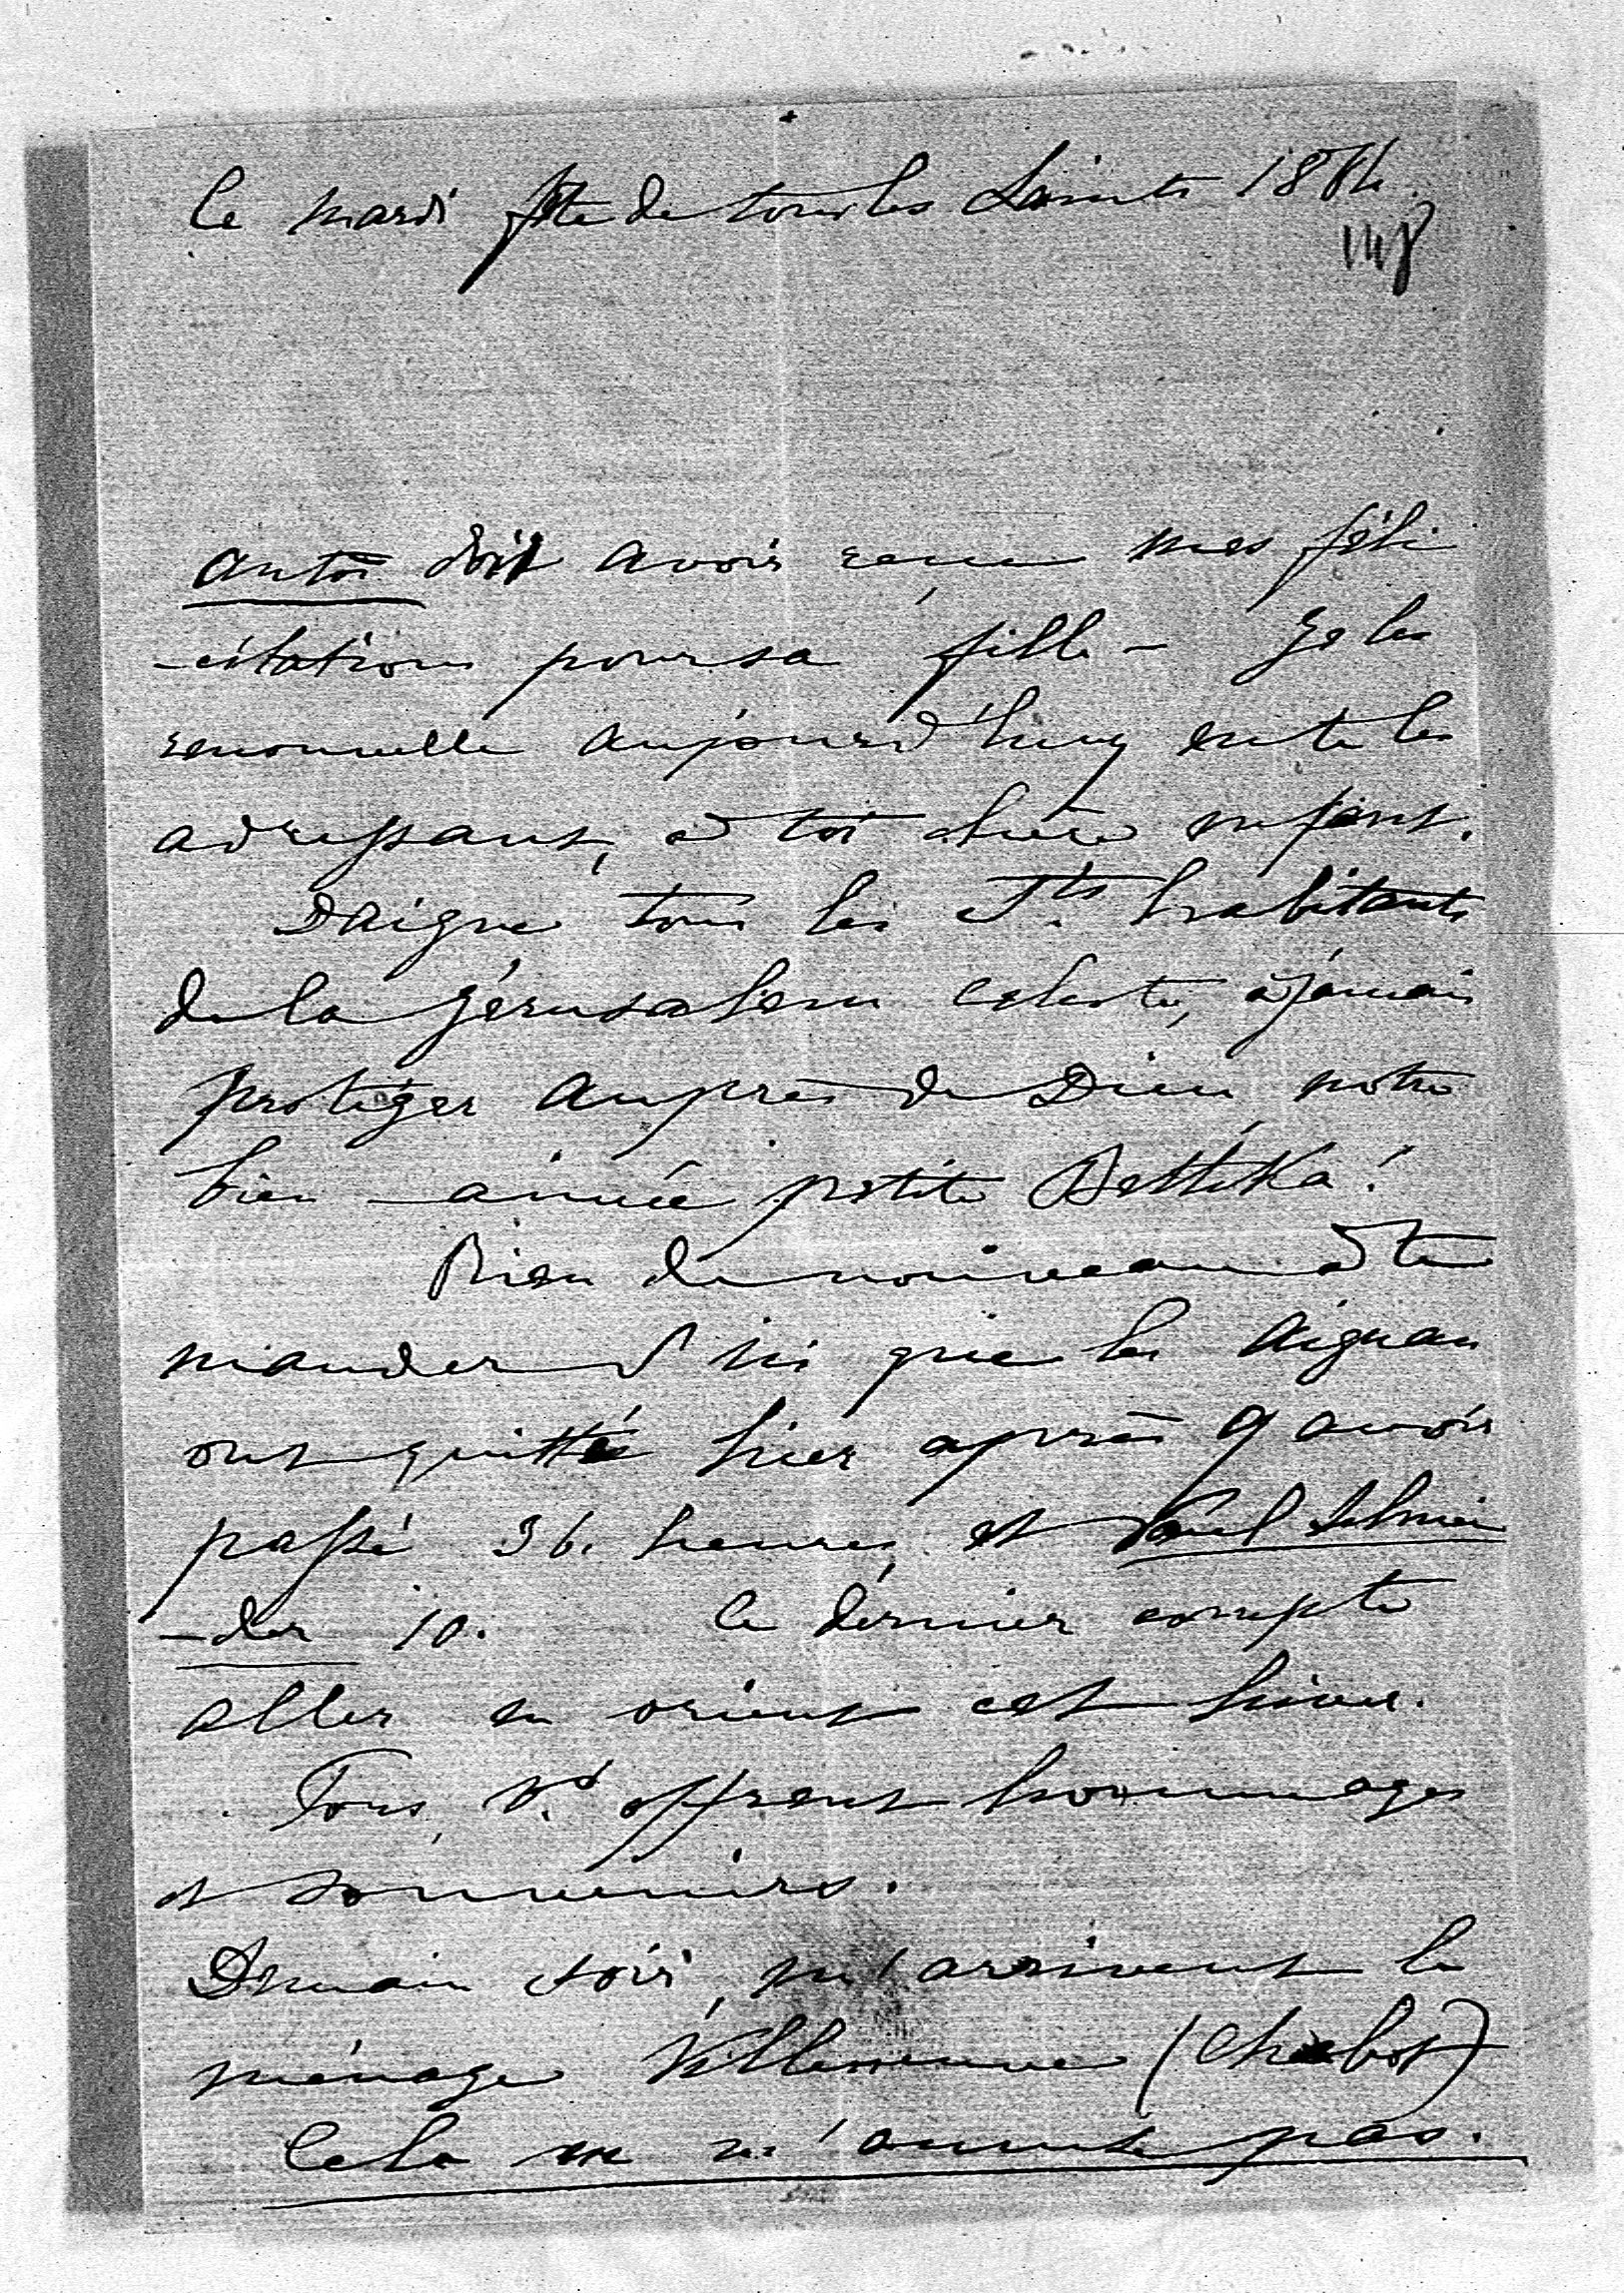 le mardi fête de tous les Saints 1884.
148
Antoi doit avoir reçu mes féli
-citations pour sa fille – Je les
renouvelle aujourd'huy en te les
adressant, à toi chère enfant.
Daigne tous les Sts habitants
de la Jérusalem celeste, à jamais
protéger auprès de Dieu, notre
bien-aimée petite Bettika!
Rien de nouveau à te
mander d'ici que les Aignan
ont quitté hier après y avoir
passé 36. heures, et Paul Schnei
-der 10. Ce dernier compte
aller en orient cet hiver.
Tous, vs offrent hommages
et souvenirs.
Demain soir, m'arrivent le
ménage Villeneuve (Chabot)
Cela ne m'amuse pas.